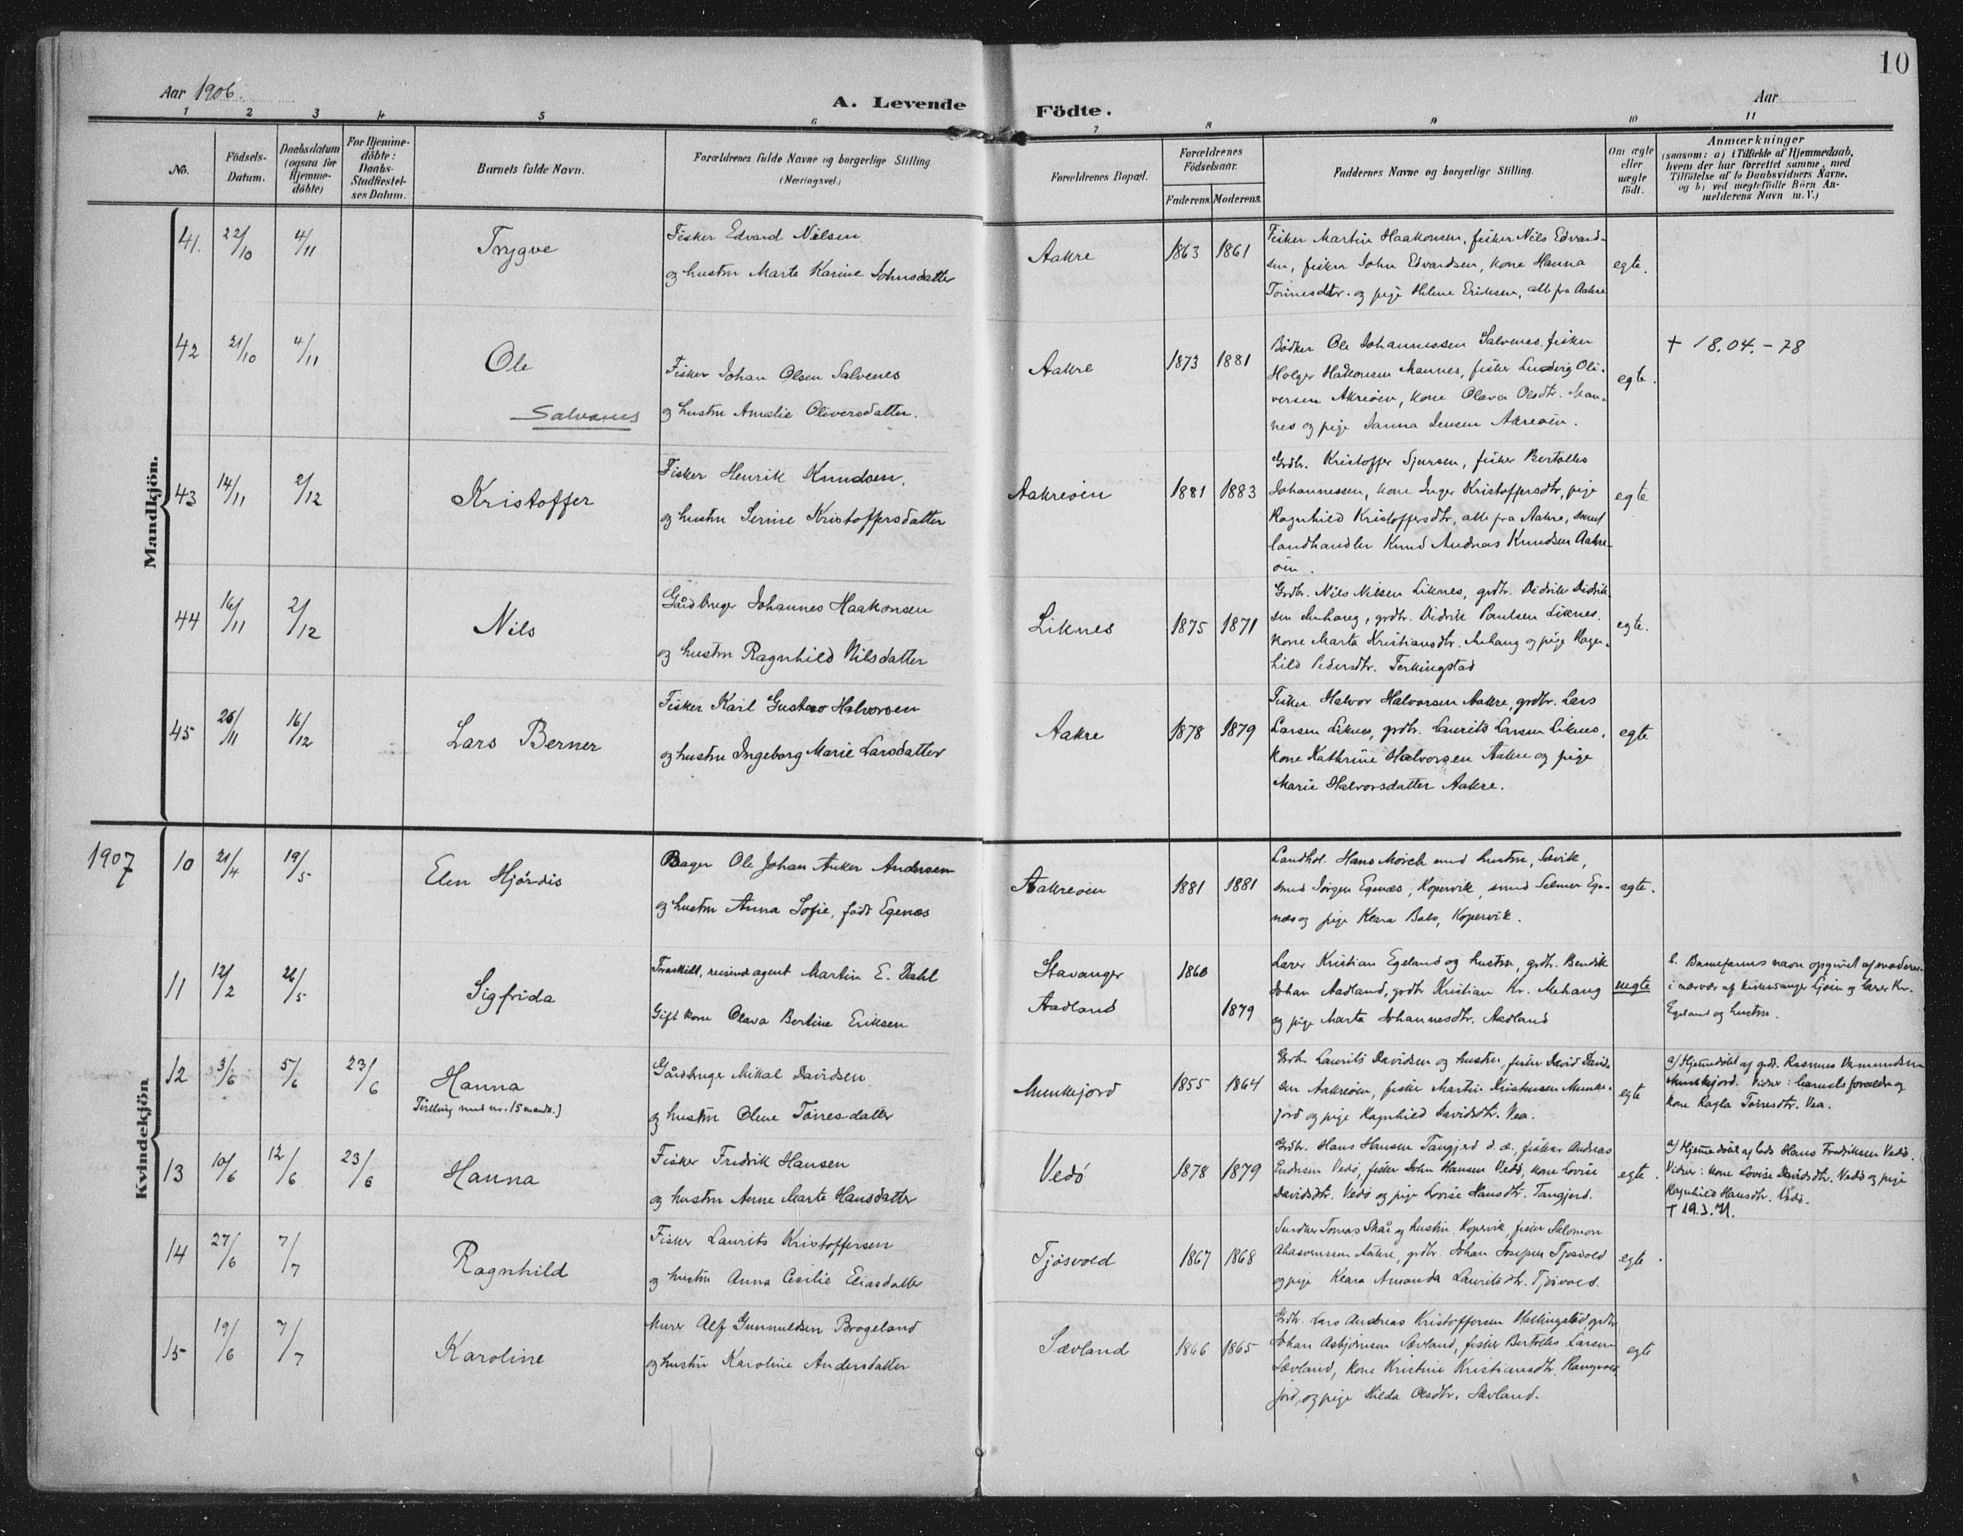 10
Aar 1906.
A. Levende Födte.
Aar
1 2 3 4 5 6 7 8 9 10 11
No.
Födsels-Datum.
Daabsdatum (ogsaa for Hjemme-döbte)
For Hjemme-döbte: Daabs-Stadfæstel-ses Datum.
Barnets fulde Navn.
Forældrenes fulde Navne og borgerlige Stilling. (Næringsvei.)
Forældrenes Bopæl.
Forældrenes Födselsaar.
Faderens. Moderens.
Faddernes Navne og borgerlige Stilling.
Om ægte eller uægte født.
Anmærkninger
(saasom: a) i Tilfælde af Hjemmedaab,
hvem der har forrettet samme, med
Tilföielse af to Daabsvidners Navne,
og b) ved uægtefödte Börn An-
melderens Navn m. V.)
Mandkjön.
41. 22/10 4/11 Trygve
Fisker Edvard Nilsen
og hustru Marte Karine Johnsdatter
Aakre 1863 1861
Fisker Martin Haakonsen, fisker Nils Edvard-
sen, fisker John Edvardsen, kone Hanna
Tønnesdtr. og pige Helene Eriksen, alle fra Aakre
egte.
42 21/10 4/11 Ole
Salvanes
Fisker Johan Olsen Salvenes
og hustru Amalie Oliversdatter.
Aakre 1873 1881
Bødker Ole Johannessen Salvenes, fisker
Holger Håkonsen Mannes, fisker Ludvig Oli-
versen Akreøen, kone Olava Olsdtr. Man-
nes og pige Janna Jensen Aakreøen.
egte.
+ 18.04.-78
43 14/11 2/12 Kristoffer
Fisker Henrik Knudsen,
og hustru Serine Kristoffersdatter
Aakreøen 1881 1883
Grdbr. Kristoffer Sjursen, fisker Bertolles
Johannessen, kone Inger Kristoffersdtr, pige
Ragnhild Kristoffersdtr, alle fra Aakre, samt
landhandler Knud Andreas Knudsen Aakre-
øen.
egte
44 16/11 2/12 Nils
Gårdbruger Johannes Haakonsen
og hustru Ragnhild Nilsdatter
Liknes 1875 1871
Grdb. Nils Nilsen Liknes, grdbr. Didrik Didrik-
sen Mehaug, grdbr. Didrik Paulsen Liknes,
kone Marta Kristiansdtr. Mehaug og pige Ragn-
hild Pedersdtr. Ferkingstad
egte.
45 25/11 16/12 Lars Berner
Fisker Karl Gustav Halvorsen
og hustru Ingeborg Marie Larsdatter
Aakre 1878 1879
Fisker Halvor Halvorsen Aakre, grdbr. Lars
Larsen Liknes, grdbr. Laurits Larsen Liknes,
kone Kathrine Halvorsen Aakre og pige
Marie Halvorsdatter Aakre.
egte
1907
Kvindekjön
10 21/4 19/5 Elen Hjørdis
Bager Ole Johan Anker Andersen
og hustru Anna Sofie, født Egenæs
Aakreøen 1881 1881
Landhdl. Hans Mørch med hustru, Sævik,
smed Jørgen Egenæs, Kopervik, smed Selmer Ege-
næs og pige Klara Bols, Kopervik.
egte.
11 12/2 26/5 Sigfrida
Fraskilt, reisend agent Martin E. Dahl
Gift kone Olava Bertine Eriksen
Stavanger
Aadland
1860
1879
Lærer Kristian Egeland og hustru, grdbr. Bendik
Johan Aadland, grdbr Kristian Kr. Mehaug
og pige Marta Johannesdtr. Aadland
uegte
b. Barnefarens navn opgivet af moderen
i nærvær af kirkesanger Gjøen og lærer Kr.
Egeland og hustru.
12 3/6 5/6 23/6 Hanna
Tvilling med nr. 15 mandk.)
Gårdbruge Mikal Davidsen
og hustru Olene Tørresdatter
Munkejord 1855 1864
Grdb. Laurits Davidsen og hustru, fisker David David-
sen Aakreøen, fisker Martin Kristensen Munke-
jord og pige Ragnhild Davidsdtr. Vea.
egte
a) Hjemmedøbt af grdb. Rasmus Vermundsen
Munkejord. Vidner: barnets forældre og
kone Ragla Tørresdtr. Vea.
13 10/6 12/6 23/6 Hanna
Fisker Fredrik Hansen
og hustru Anne Marte Hansdatter
Vedø 1878 1879
Grdbr. Hans Hansen Tangjerd d.æ., fisker Andreas
Endresen Vedø, fisker John Hansen Vedø, kone Lovise
Davidsdtr. Vedø og pige Lovise Hansdtr. Tangjerd.
egte.
a) Hjemmedøbt af lods Hans Fredriksen Vedø.
Vidner: kone Lovise Davidsdtr. Vedø og pige
Ragnhild Hansdtr. Vedø.
+ 19.3.71.
14 27/6 7/7 Ragnhild
Fisker Laurits Kristoffersen
og hustru Anna Cecilie Eliasdatter
Tjøsvold 1867 1868
Snedker Tomas Skår og hustru Kopervik, fisker Salomon
Ahasverussen Aakre, grdbr. Johan Josefsen Tjøsvold
og pige Klara Amanda Lauritsdtr. Tjøsvold.
egte
15 19/6 7/7 Karoline
Murer Alf Gunnuldsen Brogeland
og hustru Karoline Andersdatter
Sævland 1866 1865
Grdb. Lars Andreas Kristoffersen Hallingstad, grdbr
Johan Asbjørnsen Sævland, fisker Bertolles Larsen
Sævland, kone Kristine Kristiansdtr. Rangvald-
jord, og pige Hilda Olsdtr. Sævland.
egte